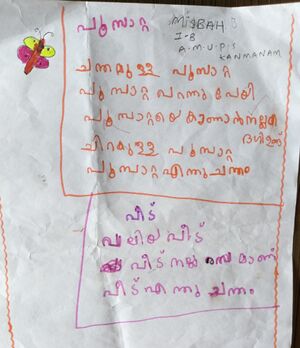 പൂമ്പാറ്റ
MISBAH
I-B
A.M.U.P.S
KANMANAM
ചന്തമുള്ള പൂമ്പാറ്റ
പൂമ്പാറ്റ പറന്നു പോയി
പൂമ്പാറ്റയെ കാണാൻ നല്ല
ഭംഗിണ്ട്
ചിറകുള്ള പൂമ്പാറ്റ
പൂമ്പാറ്റ എന്തു ചന്തം
വീട്
വലിയ വീട്
വീട് നല്ല രസമാണ്
വീട് എന്തു ചന്തം